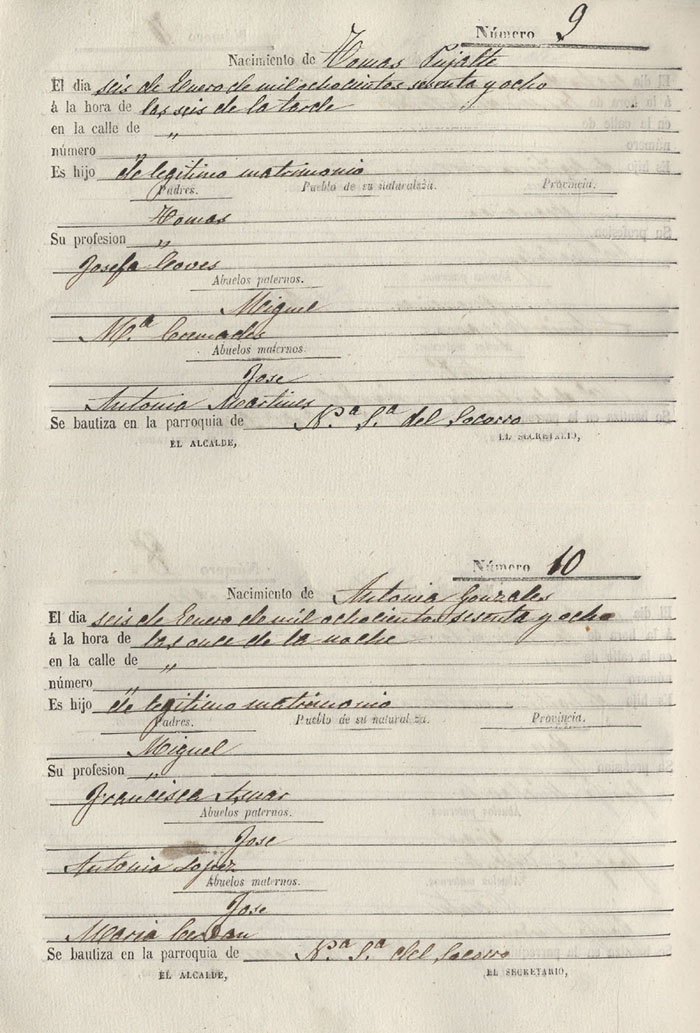 Número 9
Nacimiento de Tomas Pujalte
El dia seis de Enero de mil ochocientos sesenta y ocho
á la hora de las seis de la tarde
en la calle de „
número „
Es hijo de legitimo matrimonio
Padres. Pueblo de su naturalza. Provincia.
Tomas
Su profesion „
Josefa
Abuelos paternos.
Miguel
M.ª Cremades
Abuelos maternos.
Jose
Antonia Martines
Se bautiza en la parroquia de N.ª S.ª del Socorro
EL ALCALDE, EL SECRETARIO,
Número 10
Nacimiento de Antonia Gonzales
El dia seis de Enero de mil ochocientos sesenta y ocho
á la hora de las once de la noche
en la calle de „
número „
Es hijo de legitimo matrimonio
Padres. Pueblo de su naturalza. Provincia.
Miguel
Su profesion „
Francisca
Abuelos paternos.
Jose
Antonia Lopez
Abuelos maternos.
Jose
Maria Cerdan
Se bautiza en la parroquia de N.ª S.ª del Socorro
EL ALCALDE, EL SECRETARIO,